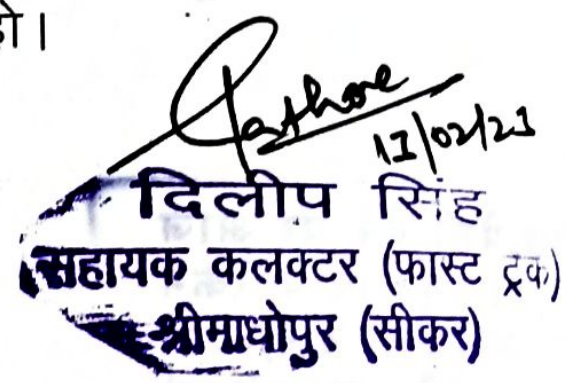 हो।
Rathore
13/02/23
दिलीप सिंह
सहायक कलक्टर (फास्ट ट्रक)
श्रीमाधोपुर (सीकर)